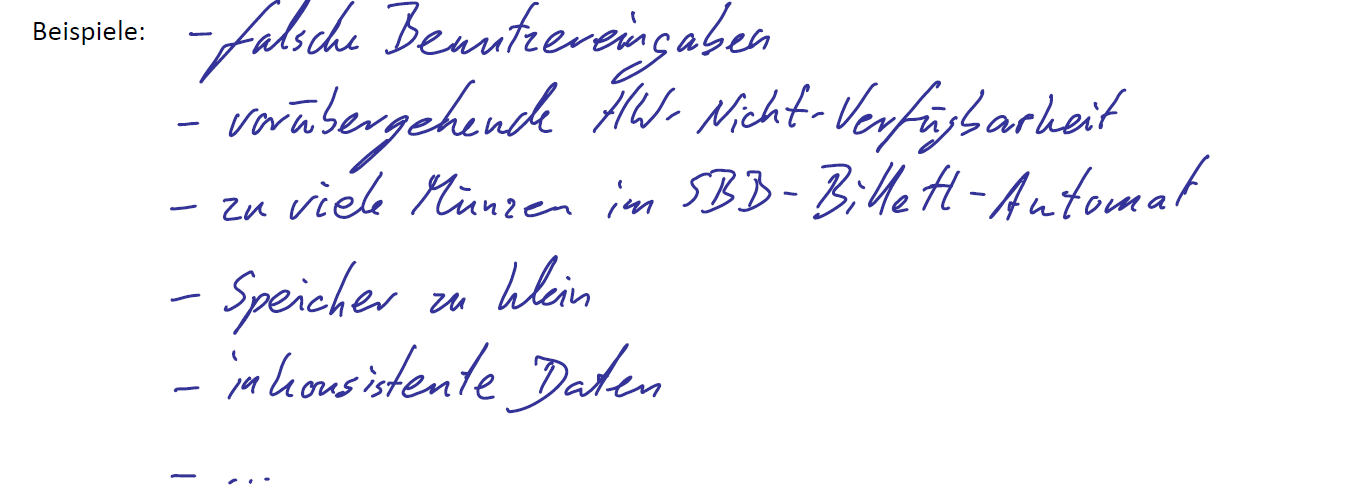 Beispiele: - falsche Benutzereingaben
- vorübergehende HW-Nicht-Verfügbarkeit
- zu viele Münzen im SBB-Billett-Automat
- Speicher zu klein
- inkonsistente Daten
- ...